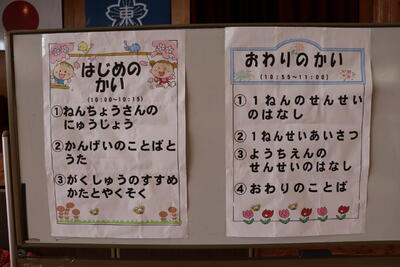 東
はじめの
かい
(10:00～10:15)
①ねんちょうさんの
にゅうじょう
②かんげいのことばと
うた
③がくしゅうのすすめ
かたとやくそく
おわりのかい
(10:55～11:00)
①１ねんのせんせい
のはなし
②１ねんせいあいさつ
③ようちえんの
せんせいのはなし
④おわりのことば